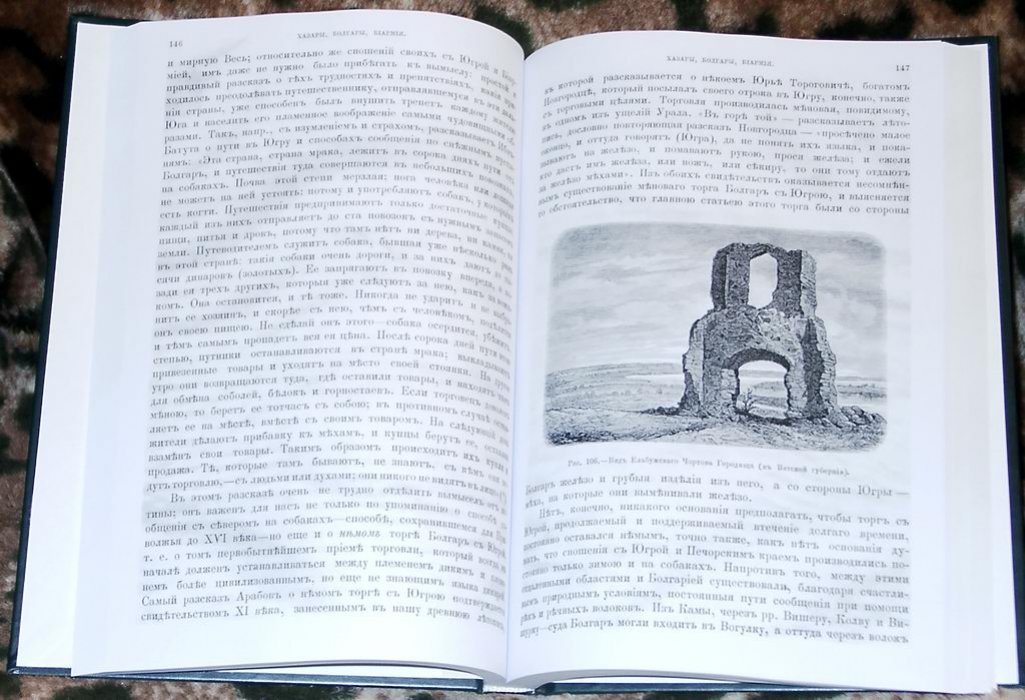 146
ХАЗАРЫ, БОЛГАРЫ, БІАРМІЯ.
и мирную Весь; относительно же сношеній своихъ съ Югрой и
міей, имъ даже не нужно было прибѣгать къ вымыслу: простой и
правдивый разсказ о тѣхъ трудностяхъ и препятствіяхъ, какія
ходилось преодолѣвать путешественнику, отправлявшемуся въ эти
нія страны, уже способенъ былъ внушить трепетъ каждому жителю
Юга и населить его пламенное воображеніе самыми чудовищными
разами. Такъ, напр., съ изумленіемъ и страхомъ, разсказываетъ
Батута о пути въ Югру и способахъ сообщенія по снѣжнымъ
нямъ: «Эта страна, страна мрака, лежитъ въ сорока дняхъ пути отъ
Болгаръ, и путешествія туда совершаются въ небольшихъ повозкахъ
на собакахъ. Почва этой степи мерзлая: нога человѣка или
не можетъ на ней устоять: потому и употребляютъ собакъ, у которыхъ
есть когти. Путешествія предпринимаютъ только достаточные
каждый изъ нихъ отправляетъ до ста повозокъ съ нужнымъ запасомъ
пищи, питья и дровъ, потому что тамъ нѣтъ ни дерева, ни камня, ни
земли. Путеводителемъ служитъ собака, бывшая уже нѣсколько разъ
въ этой странѣ: такія собаки очень дороги, и за нихъ даютъ до
сячи динаровъ (золотыхъ). Ее запрягаютъ въ повозку впереди, а
зади ея трехъ другихъ, которыя уже слѣдуютъ за нею, какъ за
комъ. Она остановится, и тѣ тоже. Никогда не ударитъ и не
нитъ ее хозяинъ, и скорѣе съ нею, чѣмъ съ человѣкомъ, подѣлится
онъ своею пищею. Не сдѣлай онъ этого—собака осердится, убѣжитъ
и тѣмъ самымъ пропадетъ вся ея цѣна. Послѣ сорока дней пути
степью, путники останавливаются въ странѣ мрака; выкладываютъ
привезенные товары и уходятъ на мѣсто своей стоянки. На другое
утро они возвращаются туда, гдѣ оставили товары, и находятъ тамъ
для обмѣна соболей, бѣлокъ и горностаевъ. Если торговецъ доволенъ
мѣною, то беретъ ее тотчасъ съ собою; въ противномъ случаѣ
ляетъ ее на мѣстѣ, вмѣстѣ съ своимъ товаромъ. На слѣдующій день
жители дѣлаютъ прибавку къ мѣхамъ, и купцы берутъ ее, оставляя
взамѣнъ свои товары. Такимъ образомъ происходитъ ихъ купля и
продажа. Тѣ, которые тамъ бываютъ, не знаютъ, съ кѣмъ они
дутъ торговлю,—съ людьми или духами; они никого не видятъ въ лицо».
Въ этомъ разсказѣ очень не трудно отдѣлить вымыселъ отъ
тины; онъ важенъ для насъ не только по упоминанію о способѣ
общенія съ сѣверомъ на собакахъ—способѣ, сохранившемся для
волжья до XVI вѣка—но еще и о нѣмомъ торгѣ Болгаръ съ Югрой,
т. е. о томъ первобытнѣйшемъ пріемѣ торговли, который всегда
началѣ долженъ устанавливаться между племенемъ дикимъ и
немъ болѣе цивилизованнымъ, но еще не знающимъ языка дикарей.
Самый разсказъ Арабовъ о нѣмомъ торгѣ съ Югрою подтверждается
свидѣтельствомъ XI вѣка, занесеннымъ въ нашу древнюю лѣтопись,
ХАЗАРЫ, БОЛГАРЫ, БІАРМІЯ.
147
въ которой разсказывается о нѣкоемъ Юрьѣ Тороговичѣ, богатомъ
Новгородцѣ, который посылалъ своего отрока въ Югру, конечно, также
съ торговыми цѣлями. Торговля производилась мѣновая, повидимому,
въ одномъ изъ ущелій Урала. «Въ горѣ той» — разсказываетъ лѣто-
пись, дословно повторяющая разсказъ Новгородца — «просѣчено малое
оконцо, и оттуда говорятъ (Югра), да не понять ихъ языка, и пока-
зываютъ на желѣзо, и помаваютъ рукою, прося желѣза; и ежели
кто дастъ имъ желѣза, или ножъ, или сѣкиру, то они тому отдаютъ
за желѣзо мѣхами». Изъ обоихъ свидѣтельствъ оказывается несомнѣн-
нымъ существованіе мѣноваго торга Болгаръ съ Югрою, и выясняется
то обстоятельство, что главною статьею этого торга были со стороны
Рис. 106.—Видъ Елабужскаго Чортова Городища (въ Вятской губерніи).
Болгаръ желѣзо и грубыя издѣлія изъ него, а со стороны Югры —
мѣха, на которые они вымѣнивали желѣзо.
Нѣтъ, конечно, никакого основанія предполагать, чтобы торгъ съ
Югрой, продолжаемый и поддерживаемый втеченіе долгаго времени,
постоянно оставался нѣмымъ, точно также, какъ нѣтъ основанія ду-
мать, что сношенія съ Югрой и Печорскимъ краемъ производились по-
стоянно только зимою и на собакахъ. Напротивъ того, между этими
отдаленными областями и Болгаріей существовали, благодаря счастли-
вымъ природнымъ условіямъ, постоянныя пути сообщенія при помощи
рѣкъ и рѣчныхъ волоковъ. Изъ Камы, черезъ рр. Вишеру, Колву и Ви-
шурку—суда Болгаръ могли входить въ Вогулку, а оттуда черезъ волокъ